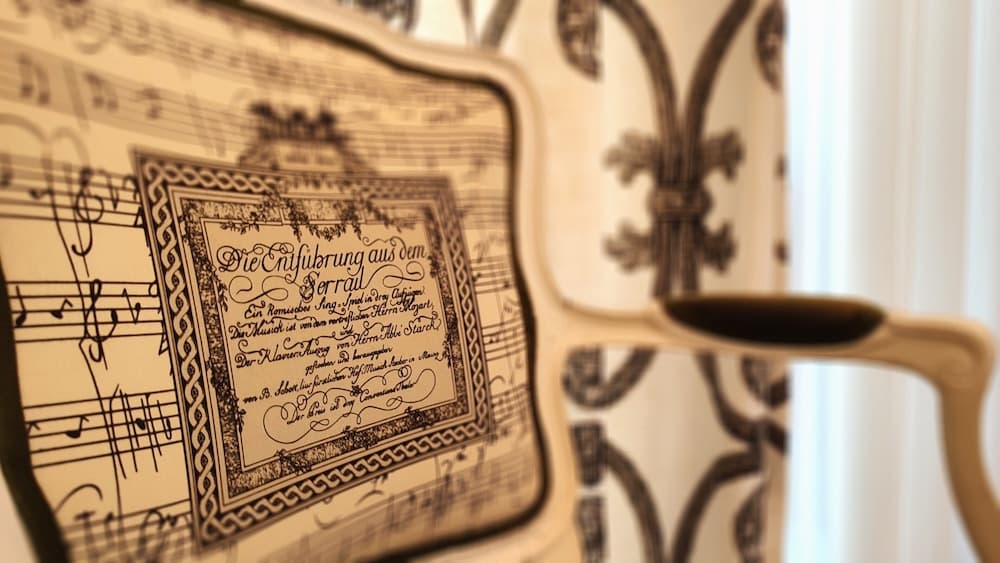 Die Entführung aus dem
Serrail
Ein Komisches Sing-Spiel in drey Aufzügen
Die Musick ist von dem vortreflichen Herrn Mozart
und
Der Klavier Auszug von Herrn Abbé Starck
gestochen und herausgegeben
von B. Schott, kurfürstlichen Hof Musick Stecher in Mainz
Der Preis ist drey Conventions Thaler